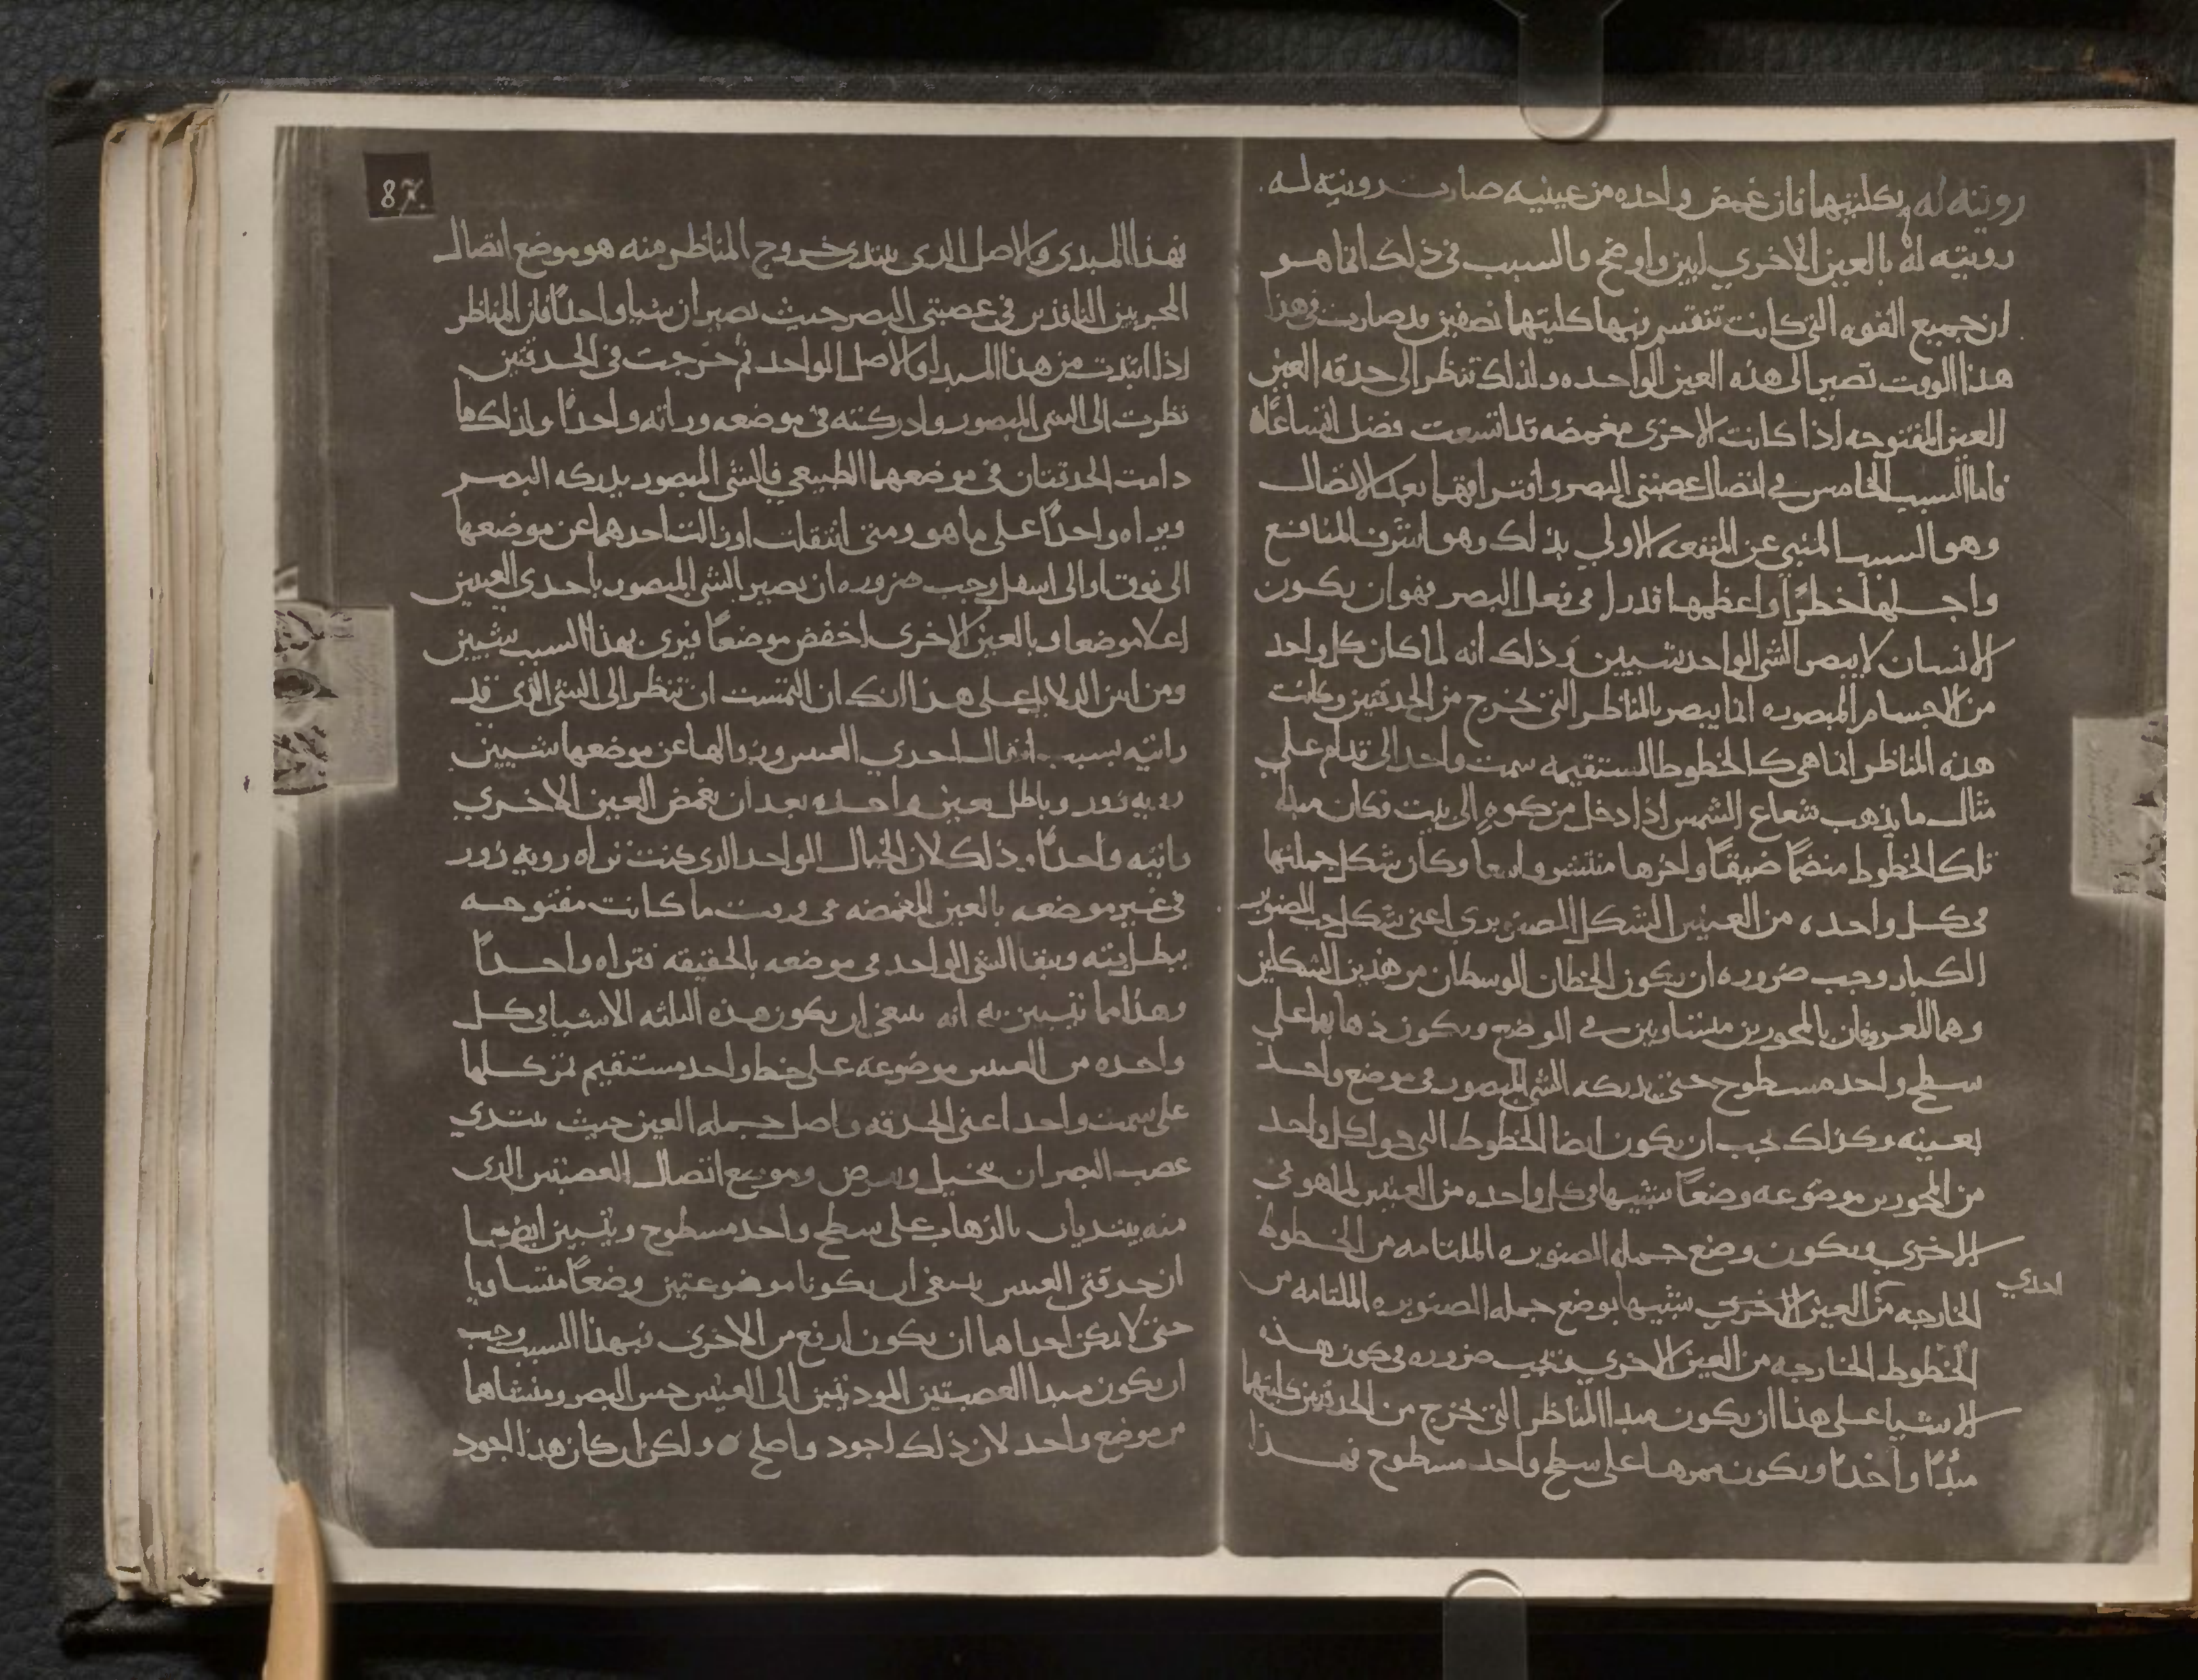 رويته له بكلتيهما فان غمض واحده من عينيه صارت رويته له
رويته له بالعين الاخري ابين واوضح والسبب في ذلك انما هو
ان جميع القوه التي كانت تنقسم بها كليتهما نصفين قد صارت في هذا
هذا الوقت تصير الى هذه العين الواحده ولذلك تنظر الى حدقه العين
العين المفتوحه اذا كانت الاخرى مغمضه قد اتسعت فضل اتساعاه
فاما السبب الخامس في اتصال عصبتي البصر وافتراقهما بعد الاتصال
وهو السبب المنبي عن المنفعه الاولي بذلك وهو اشرف المنافع
واجلها خطرًا واعظمها قدرا في فعل البصر فهو ان يكون
الانسان لا يبصر الشي الواحد شيين وذلك انه لما كان كل واحد
من الاجسام المبصوره انما يبصر بالمناظر التي تخرج من الحدقتين وكانت
هذه المناظر انما هي كالخطوط المستقيمه سمت واحد الى قدام على
مثال ما يذهب شعاع الشمس اذا دخل من كوه الى بيت فكان مبدا
تلك الخطوط منضمًا ضيقًا واخرها منتشر واسعا وكان شكل جملتها
في كل واحده من العينين الشكل الصنوبري اعني شكل حب الصنوبر
الكبار وجب ضروره ان يكون الخطان الوسطان من هذين الشكلين
وهما المعروفان بالمحورين متساويين في الوضع ويكون ذهابهما على
سطح واحد مسطوح حتى يدركه الشي المبصور في موضع واحد
بعينه وكذلك يجب ان يكون ايضا الخطوط التي حول كل واحد
من المحورين موضوعه وضعًا شبيها في كل واحده من العينين لما هو في
الاخري ويكون وضع جمله الصنوبره الملتامه من الخطوط
احدي
الخارجه من العين الاخري شبيها بوضع جمله الصنوبره الملتامه من
الخطوط الخارجه من العين الاخري فتجب ضروره في كون هذه
الاشيا على هذا ان يكون مبدا المناظر التي تخرج من الحدقتين كليتهما
مبدًا واحدًا ويكون ممرها على سطح واحد مسطوح فهذا
87
فهذا المبدى والاصل الذي يبتدى خروج المناظر منه هو موضع اتصال
المجريين النافذين في عصبتي البصر حيث تصيران شيا واحدًا فان المناظر
اذا ابتدت من هذا المبدا والاصل الواحد ثم خرجت في الحدقتين
نظرت الى الشي المبصور وادركته في موضعه وراته واحدًا ولذلك ما
دامت الحدقتان في موضعهما الطبيعي فالشي المبصور يدركه البصر
ويراه واحدًا على ما هو ومتى انتقلت او زالت احدهما عن موضعها
الى فوق او الى اسفل وجب ضروره ان يصير الشي المبصور باحدى العينين
اعلا موضعا وبالعين الاخرى اخفض موضعًا فيرى بهذا السبب شيين
ومن ابين الدلايل على هذا انك ان التمست ان تنظر الى الشي الذي قد
رايته بسبب انتقال احدي العينين وزوالها عن موضعها شيين
رويه زور وباطل بعين واحده بعد ان تغمض العين الاخري
رايته واحدًا وذلك لان الخيال الواحد الذي كنت تراه رويه زور
في غير موضعه بالعين المغمضه في وقت ما كانت مفتوحه
يبطل البته ويبقا الشي الواحد في موضعه بالحقيقه فتراه واحدًا
وهذا مما تتبين به انه ينبغي ان يكون هذه الثلثه الاشيا في كل
واحده من العينين موضوعه على خط واحد مستقيم تمر كلها
على سمت واحد اعنى الحدقه واصل جمله العين حيث يبتدي
عصب البصر ان ينحل ويعرض وموضع اتصال العصبتين الذي
منه يبتديان بالذهاب على سطح واحد مسطوح ويتبين ايضا
ان حدقتي العينين ينبغي ان يكونا موضوعتين وضعًا متساويا
حتى لا يكن احداهما ان يكون ارفع من الاخرى فبهذا السبب وجب
ان يكون مبدا العصبتين المودتين الى العينين حس البصر ومنشاهما
من موضع واحد لان ذلك اجود واصلح ولكن ان كان هذا اجود